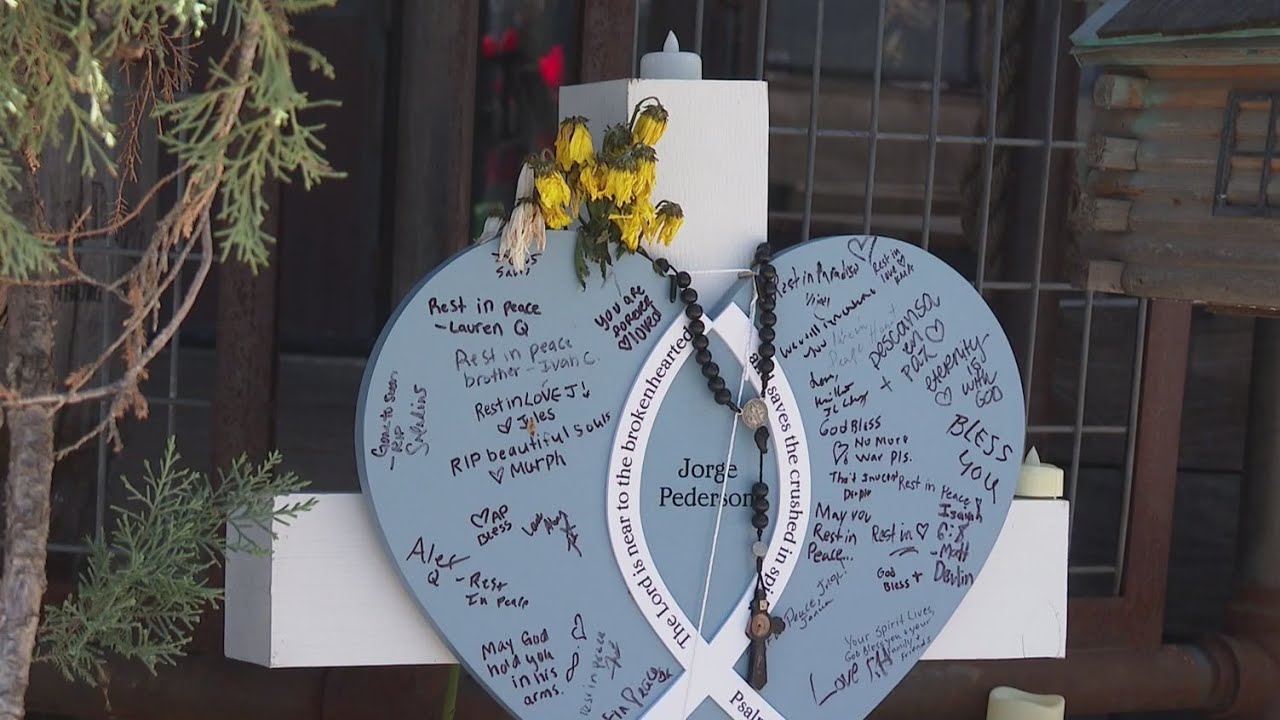 Rest in peace
-Lauren Q
YOU ARE
FOREVER
loved
Rest in peace
brother - Ivan C.
Rest in LOVE J!
Jules
RIP beautiful souls
Murph
Gone to soon
-RIP
AP
BLESS
Alex
Q
-Rest
In peace
May God
hold you
in his
arms.
Rest in peace
in Peace
The Lord is near to the brokenhearted
and saves the crushed in spi
Psal
Jorge
Pederson
Rest in Paradise
Rest in
love
We will
you
descansa
en
+ Paz
eternity
is
with
GOD
God Bless
No More
War Pls.
BLESS
YOU
That Innocent
People
Rest in Peace
Isaiah
6:8
-Matt
Devlin
May you
Rest in
Peace...
Rest in
God
Bless +
Peace Jorge!
Your Spirit Lives,
God Bless you & your
family &
friend
Love